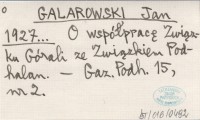 GALAROWSKI Jan
1927... O współpracę Związ-
ku Górali ze Związkiem Pod-
halan. — Gaz. Podh. 15,
nr 2.